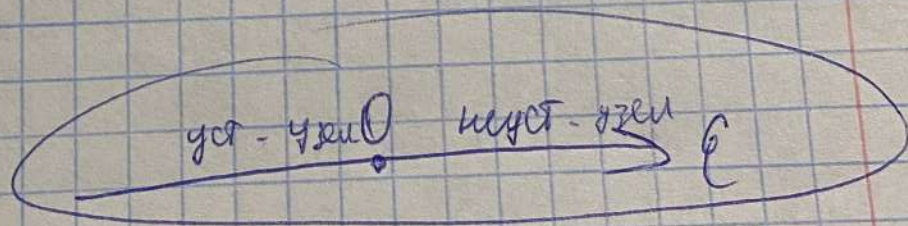 уст - узел 0 неуст - узел ε